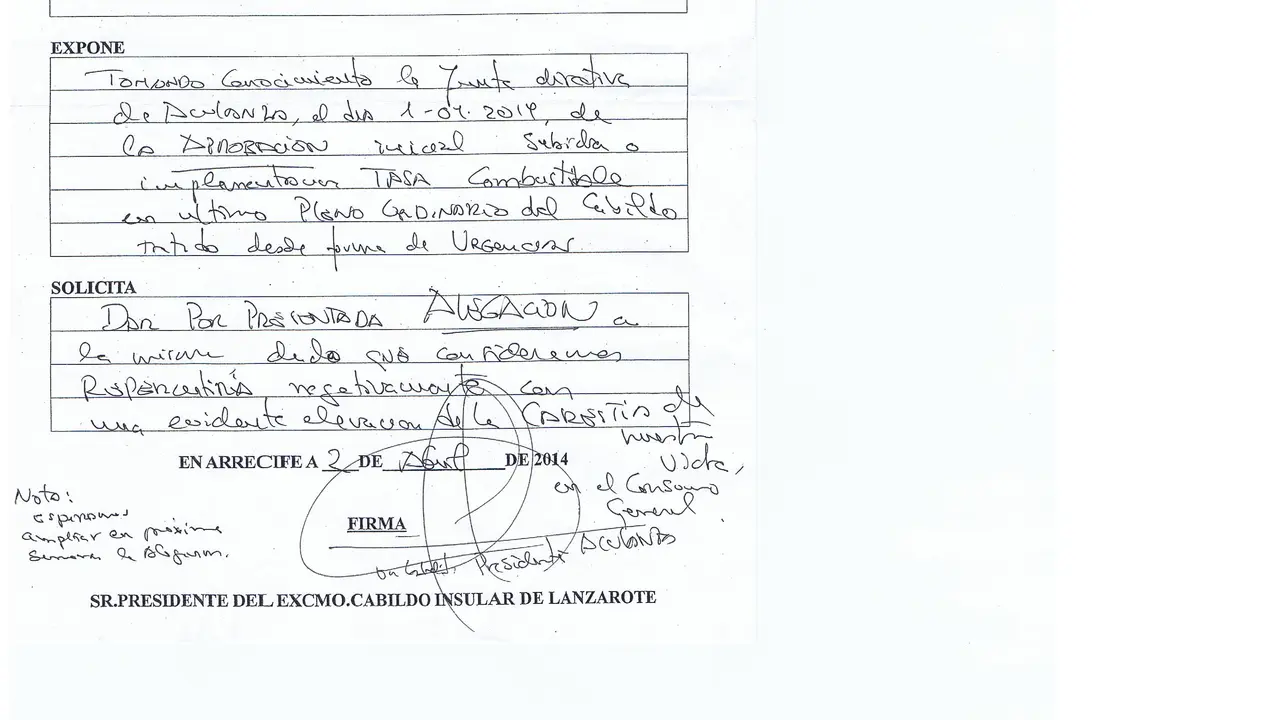 EXPONE
TOMANDO Conocimiento la Junta directiva
de Aculanza, el dia 1-04.2014, de
la APROBACION inicial subida o
implementacion TASA Combustible
en ultimo PLENO ORDINARIO del Cabildo
tratido desde forma de URGENCIAS
SOLICITA
DAR POR PRESENTADA ALEGACION a
la misma dado que consideramos
Repercutirá negativamente con
una evidente elevacion de la CARESTIA de
nuestra
Vida,
en el Consumo
General.
EN ARRECIFE A 2 DE Abril DE 2014
Nota:
esperamos
ampliar en próxima
semana la alegacion.
FIRMA
Presidente ACULANZA
SR.PRESIDENTE DEL EXCMO.CABILDO INSULAR DE LANZAROTE